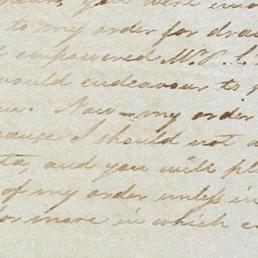 you were
to my order for
empowered Mr.
would endeavour to
Now—my order
cause I should not
and you will
of my order unless in
or more in which